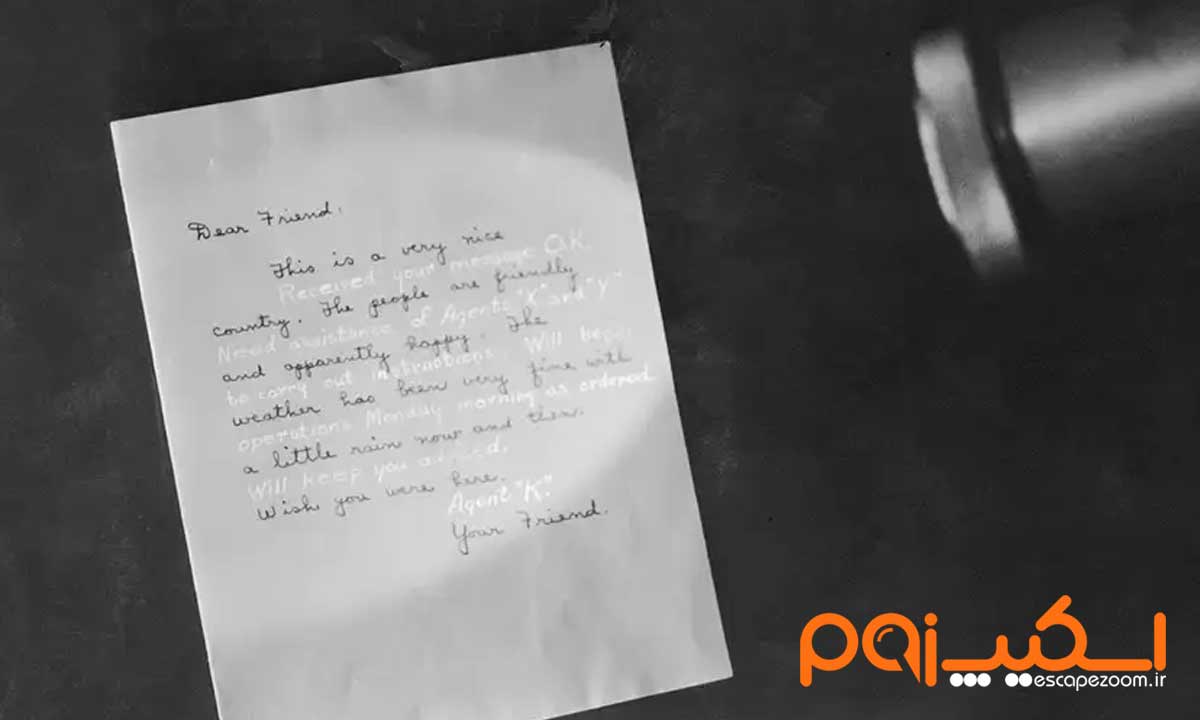 Dear Friend,
This is a very nice
Received your message O.K.
country. The people are friendly
Need assistance of Agents "X" and "Y"
and apparently happy. The
to carry out instructions. Will begin
weather has been very fine with
operations Monday morning as ordered.
a little rain now and then.
Will keep you advised.
Wish you were here.
Agent "K".
Your Friend.
اسکیپ زوم
escapezoom.ir